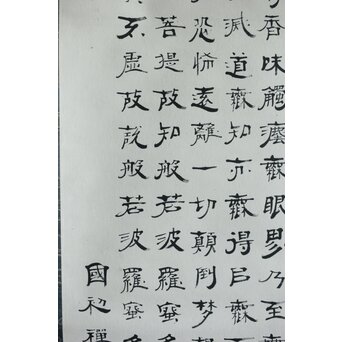 香味觸灋無眼界乃至無
滅道無知亦無得㠯無
恐怖遠離一切顛倒夢想
菩提故知般若波羅蜜多
不虛故說般若波羅蜜多
國初禪